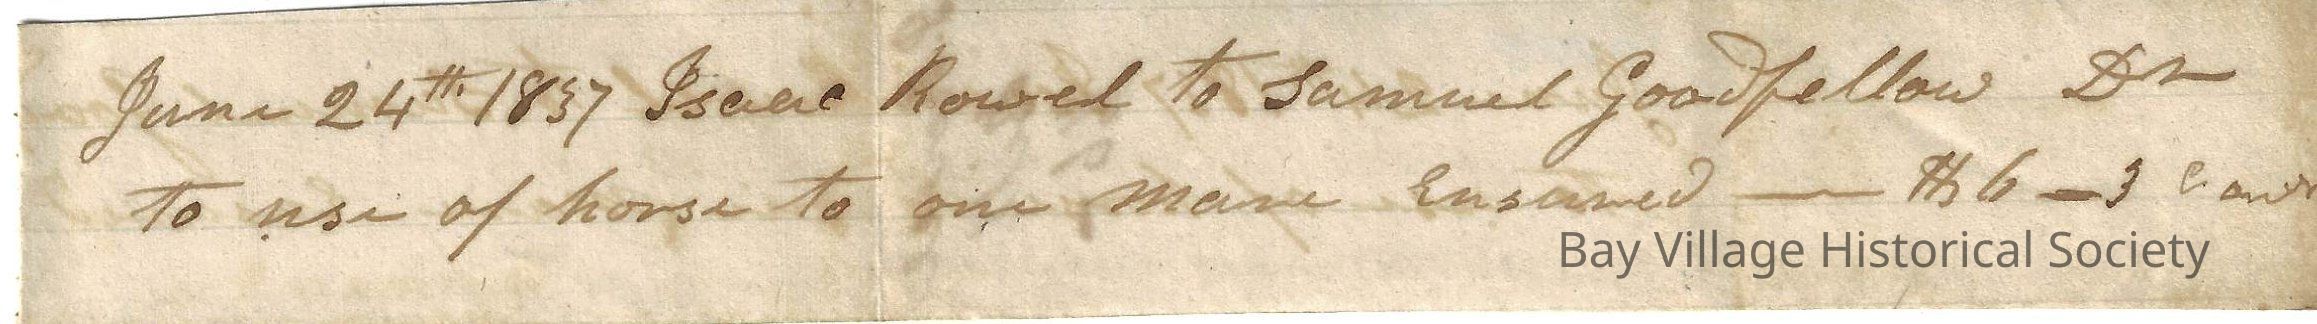 June 24th 1837 Isaac Rowel to Samuel Goodfellow Dr
to use of horse to one mare Ensured — $6 – 3
Bay Village Historical Society